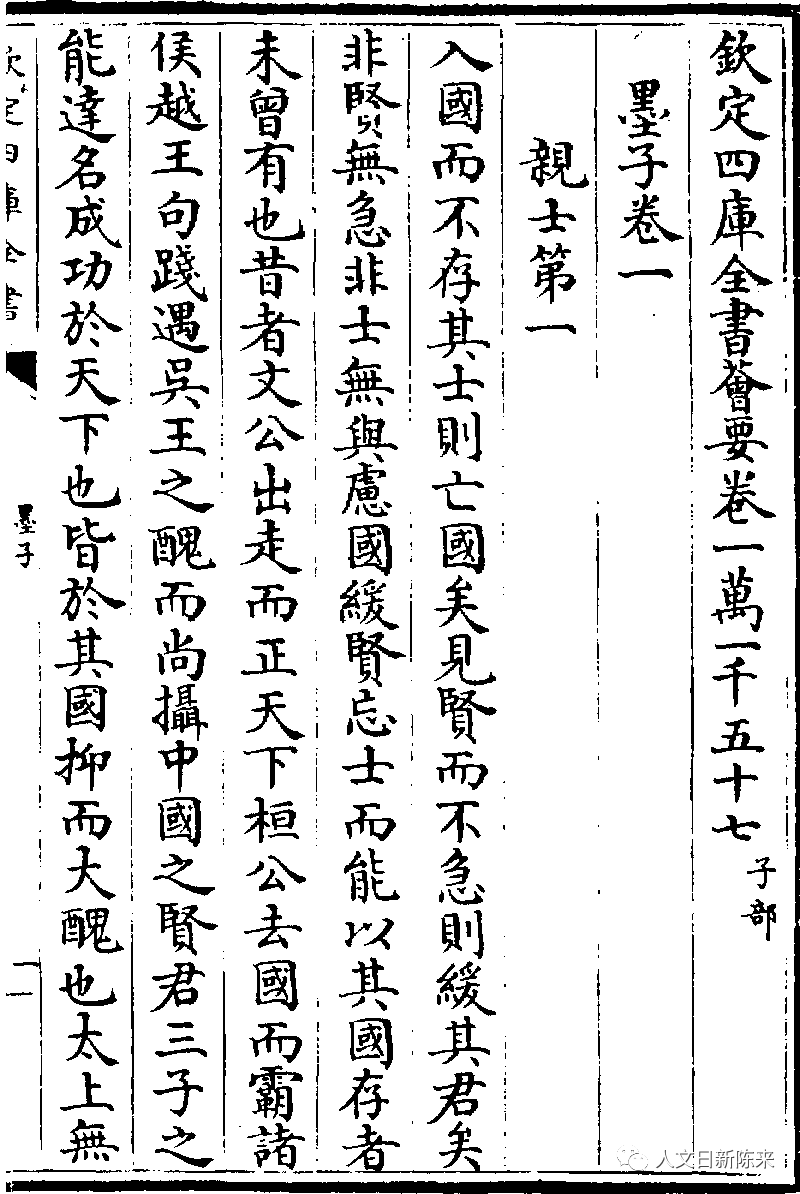 欽定四庫全書薈要卷一萬一千五十七
子部
墨子卷一
親士第一
入國而不存其士則亡國矣見賢而不急則緩其君矣
非賢無急非士無與慮國緩賢忘士而能以其國存者
未曾有也昔者文公出走而正天下桓公去國而霸諸
侯越王句踐遇吳王之醜而尚攝中國之賢君三子之
能達名成功於天下也皆於其國抑而大醜也太上無
欽定四庫全書
墨子
一
人文日新陈来